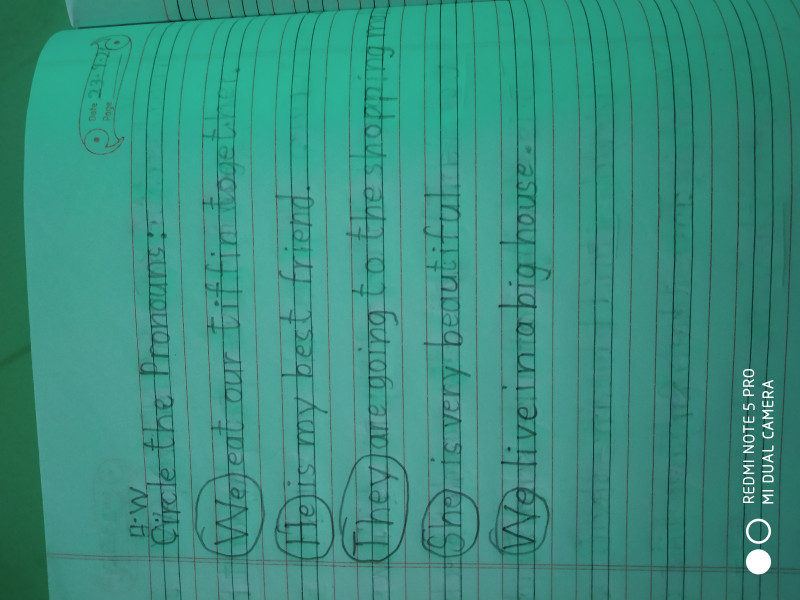 Date 23-11-
Page
H.W
Circle the Pronouns:
We eat our tiffin together.
He is my best friend.
They are going to the shopping
She is very beautiful.
We live in a big house.
REDMI NOTE 5 PRO
MI DUAL CAMERA